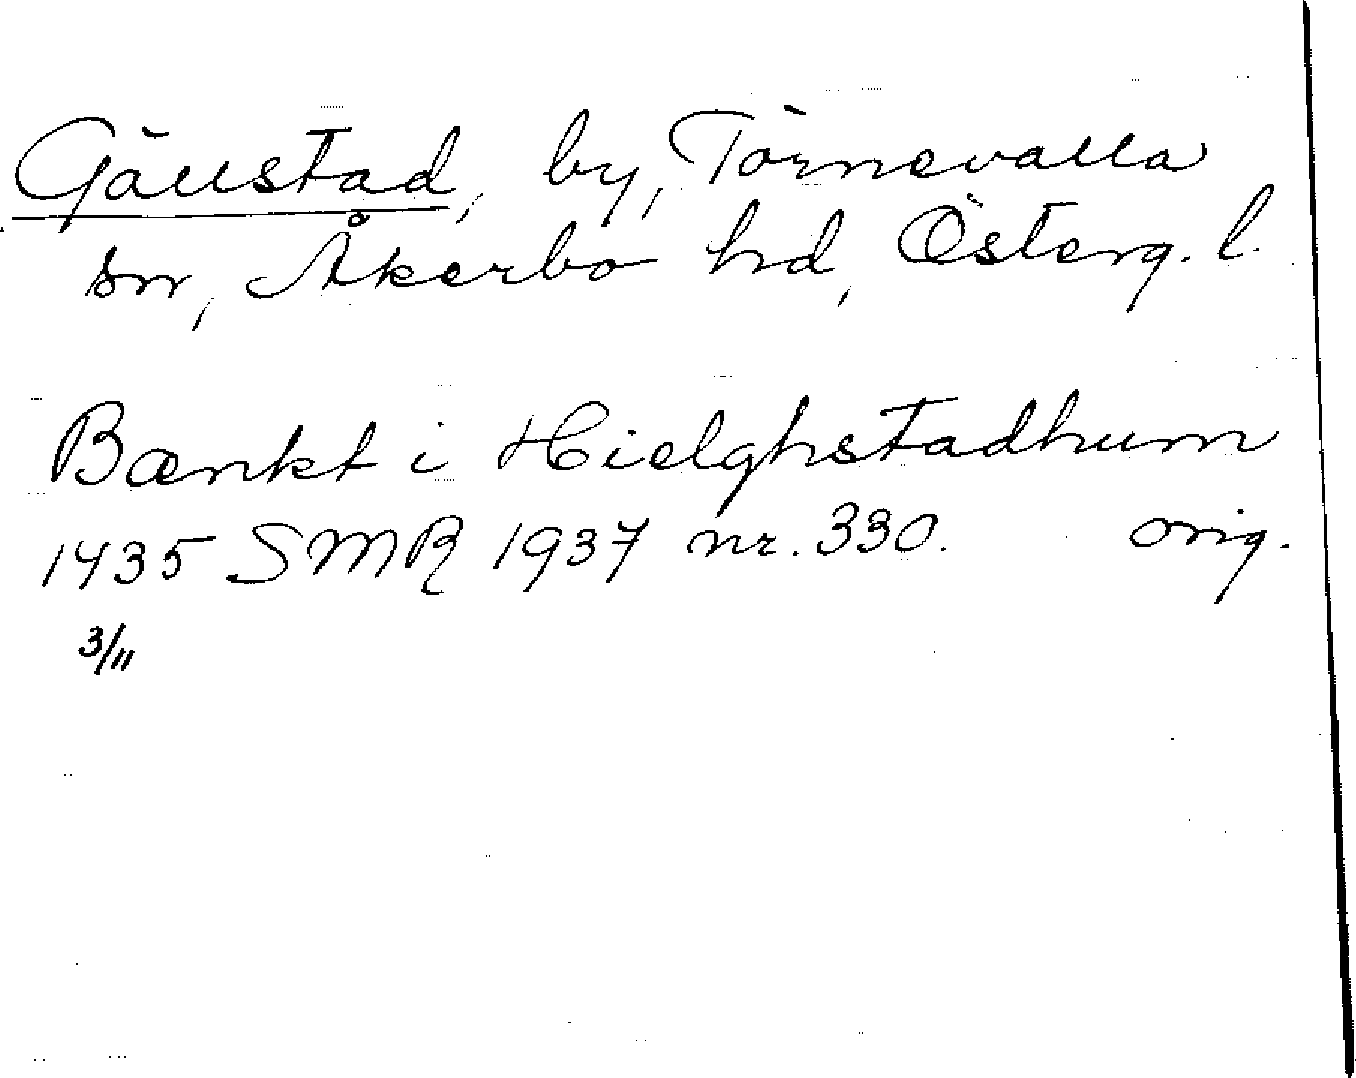 Gällstad, by, Törnevalla
sn, Åkerbo hd, Österg. l.
Bænkt i Hielghstadhum
1435 SMR 1937 nr. 330. orig.
3/11